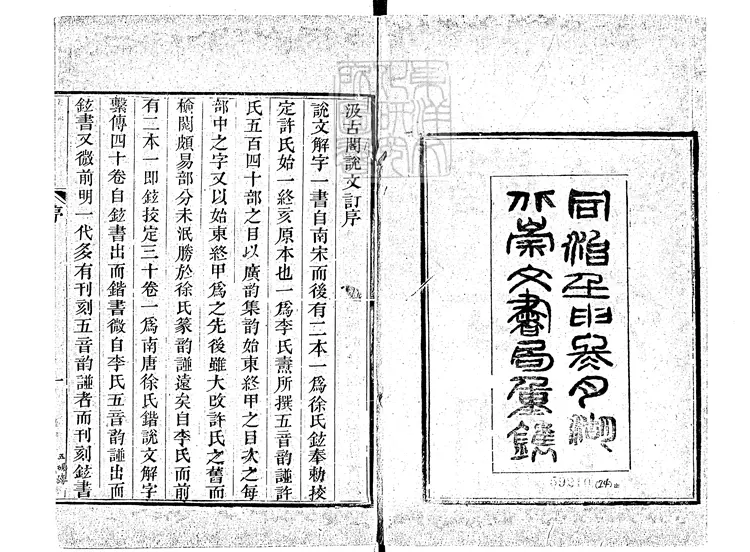 同治壬申冬月湖
北崇文書局重鐫
59210 (24)
汲古閣說文訂序
說文解字一書自南宋而後有二本一爲徐氏鉉奉勅挍
定許氏始一終亥原本也一爲李氏燾所撰五音韵譜許
氏五百四十部之目以廣韵集韵始東終甲之目次之每
部中之字又以始東終甲爲之先後雖大改許氏之舊而
檢閱頗易部分未泯勝於徐氏篆韵譜遠矣自李氏而前
有二本一卽鉉挍定三十卷一爲南唐徐氏鍇說文解字
繫傳四十卷自鉉書出而鍇書微自李氏五音韵譜出而
鉉書又微前明一代多有刊刻五音韵譜者而刊刻鉉書
序
一